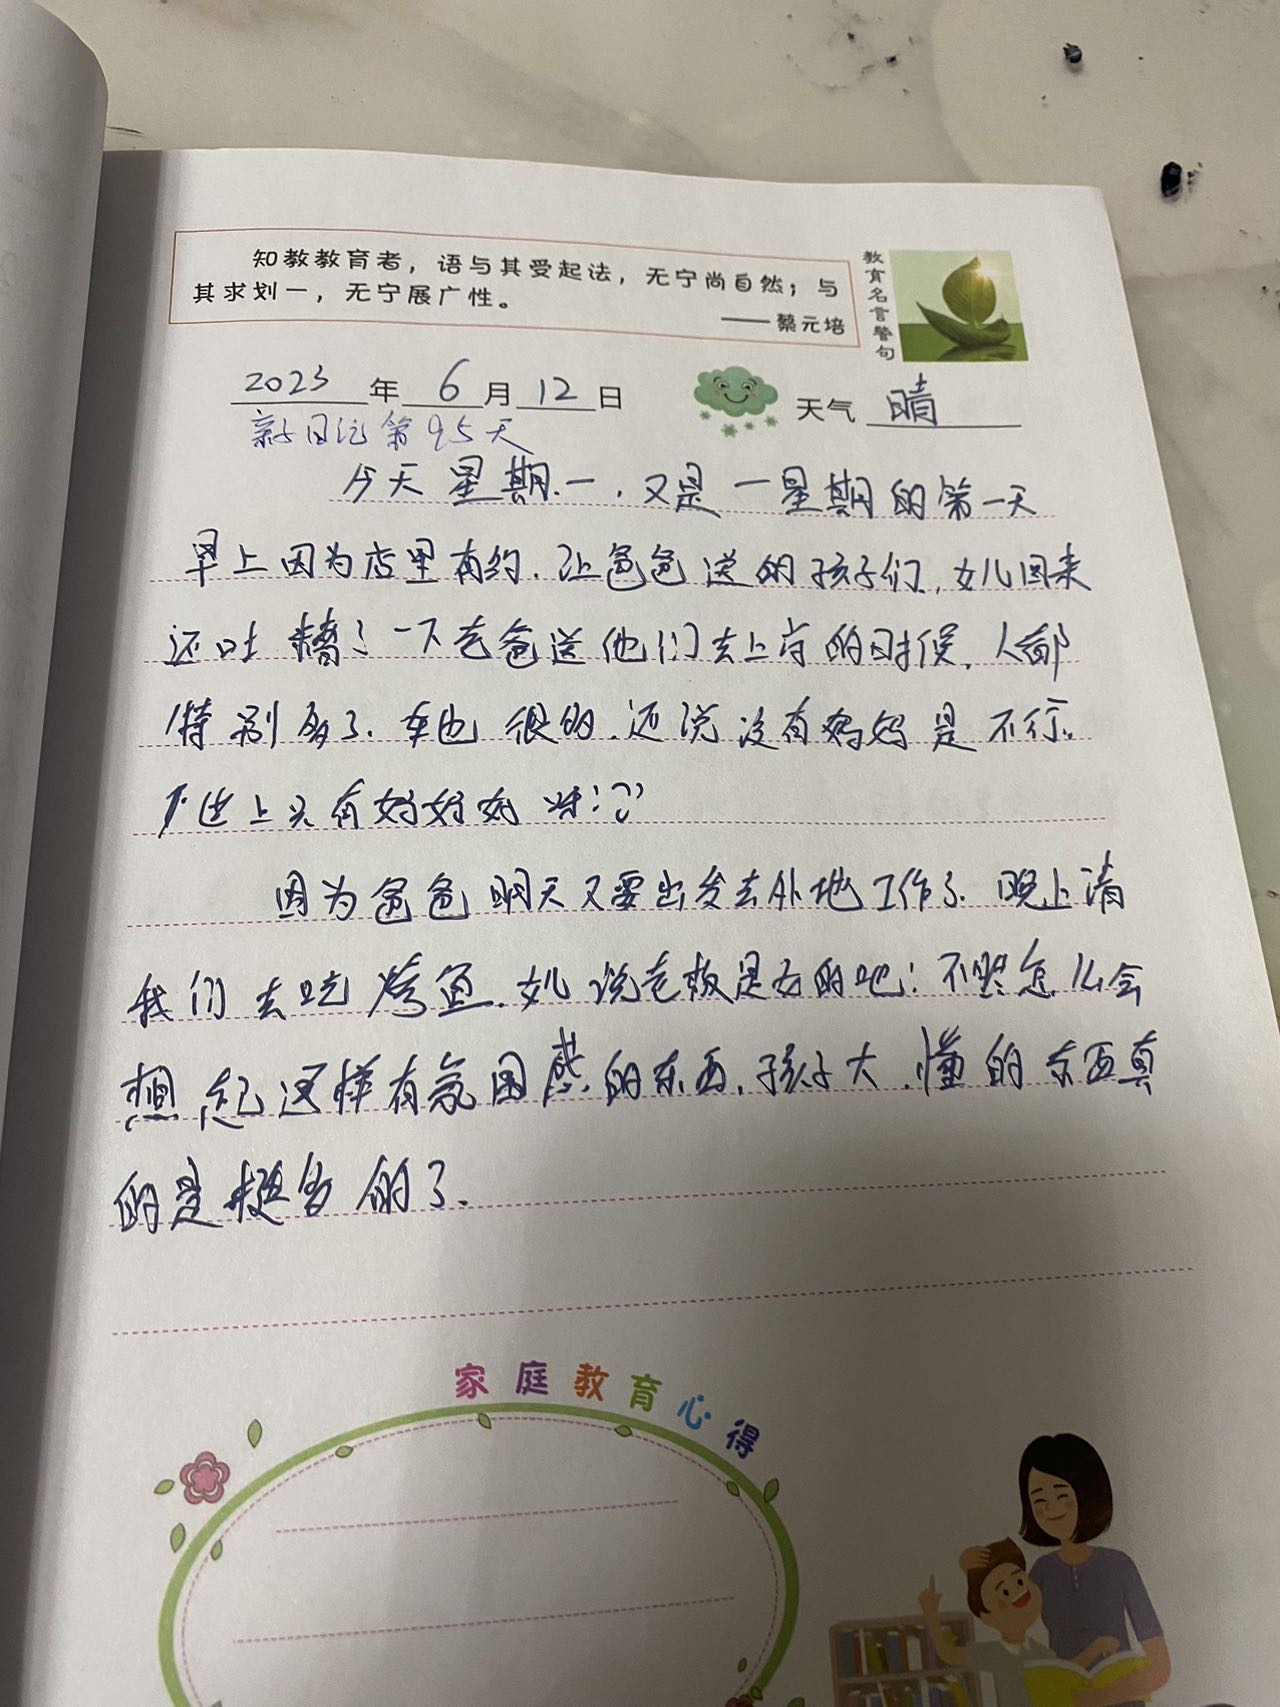 知教教育者，语与其受起法，无宁尚自然；与
其求划一，无宁展广性。
——蔡元培
教育名言警句
2023年6月12日
天气 晴
亲子日记第95天
今天星期一，又是一星期的第一天
早上因为店里有约，让爸爸送的孩子们，女儿回来
还吐糟了一下老爸送他们去上学的时候，人都
特别多了，车也很的，还说没有妈妈是不行。
世上只有妈妈好呀！
因为爸爸明天又要出发去外地工作了，晚上请
我们去吃烤鱼，女儿说老板是女的吧！不然怎么会
想起这样有氛围感的东西，孩子大，懂的东西真
的是挺多的了。
家庭教育心得